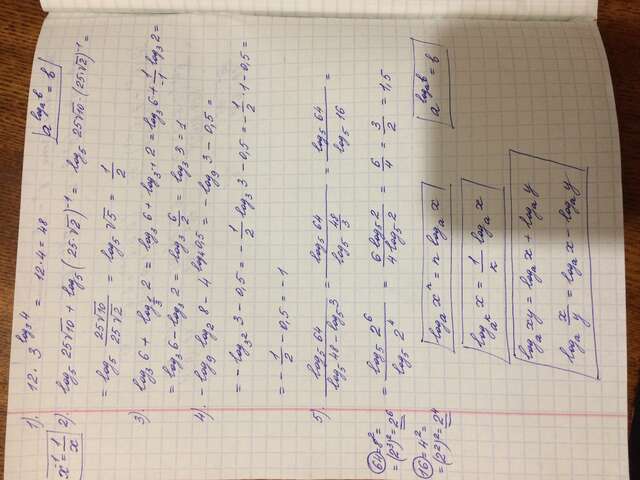 1). 12 · 3^{log_3 4} = 12·4 = 48
a^{log_a b} = b
x^{-1} = 1/x
2). log_5 25√10 + log_5 (25·√2)^{-1} = log_5 25√10 · (25·√2)^{-1} =
= log_5 25√10/25√2 = log_5 √5 = 1/2
3). log_3 6 + log_{1/3} 2 = log_3 6 + log_{3^{-1}} 2 = log_3 6 + 1/-1 log_3 2 =
= log_3 6 - log_3 2 = log_3 6/2 = log_3 3 = 1
4). - log_9 log_2 8 - 4^{log_4 0,5} = - log_9 3 - 0,5 =
= - log_{3^2} 3 - 0,5 = - 1/2 log_3 3 - 0,5 = - 1/2 · 1 - 0,5 =
= - 1/2 - 0,5 = -1
5). log_5 64/log_5 48 - log_5 3 = log_5 64/log_5 48/3 = log_5 64/log_5 16 =
64 = 8^2 =
= (2^3)^2 = 2^6
= log_5 2^6/log_5 2^4 = 6 log_5 2/4 log_5 2 = 6/4 = 3/2 = 1,5
16 = 4^2 =
= (2^2)^2 = 2^4
log_a x^n = n log_a x
a^{log_a b} = b
log_{a^k} x = 1/k log_a x
log_a xy = log_a x + log_a y
log_a x/y = log_a x - log_a y